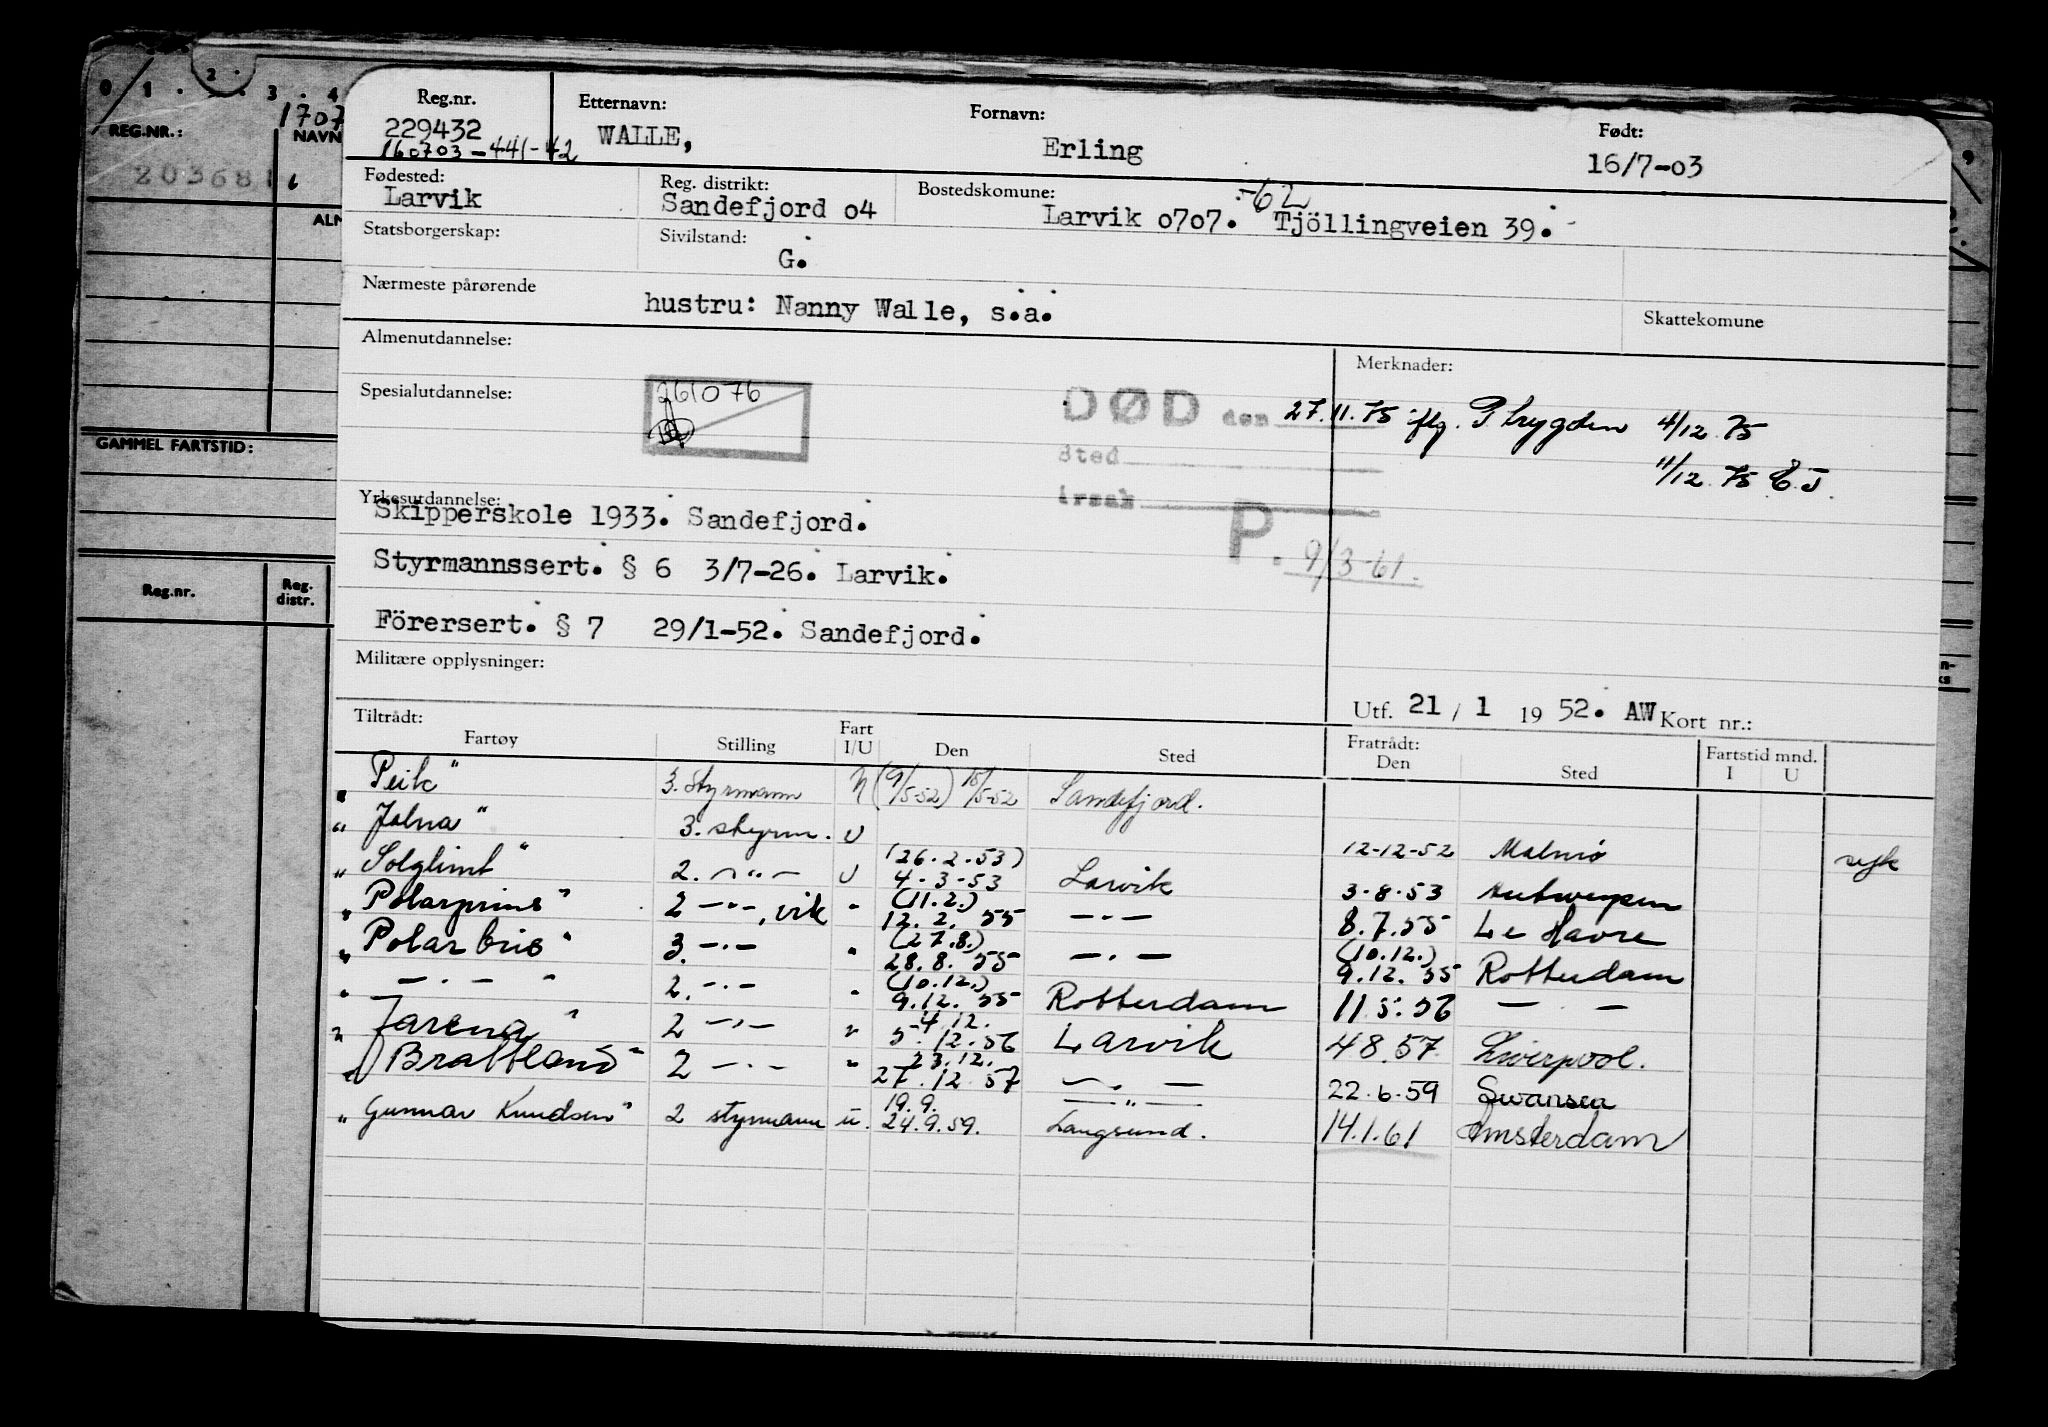 0 1 . 2 . . 3 . 4
1707
REG.NR.:
NAVN
203681
ALM
GAMMEL FARTSTID:
Reg.nr.
Reg. distr.
Reg.nr. Etternavn: Fornavn: Født:
229432 WALLE, Erling 16/7-03
160703-441-42
Fødested: Reg. distrikt: Bostedskomune: -62
Larvik Sandefjord o4 Larvik o7o7. Tjöllingveien 39.
Statsborgerskap: Sivilstand:
G.
Nærmeste pårørende
hustru: Nanny Walle, s.a.
Skattekomune
Almenutdannelse: Merknader:
Spesialutdannelse: 261076
DØD den 27.11.75 iflg. P. trygden 4/12 75
Sted 11/12 75 E.J.
årsak
Yrkesutdannelse:
Skipperskole 1933. Sandefjord.
P. 9/3-61.
Styrmannssert. § 6 3/7-26. Larvik.
Förersert. § 7 29/1-52. Sandefjord.
Militære opplysninger:
Utf. 21 / 1 19 52. AW Kort nr.:
Tiltrådt: Fratrådt: Fartstid mnd.
Fartøy Stilling Fart I/U Den Sted Den Sted I U
"Peik" 3. Styrmann (9/5-52) 15/5-52 Sandefjord.
"Jalna" 3. styrm. U 12-12-52 Malmö syk
"Solglimt" 2. -"- U (26.2.53) 4-3-53 Larvik 3-8-53 Antwerpen
"Polarprins" 2 -"-, vik " (11.2.) 12.2. 55 -"- 8.7.55 Le Havre
"Polarbris" 3. -"- " (27.8.) 28.8. 55 -"- (10.12.) 9.12. 55 Rotterdam
" -"- " 2. -"- " (10.12.) 9.12. 55 Rotterdam 11.5.56 -"-
"Jarena" 2 -"- " 4.12. 5.12.56 Larvik 4 8.57 Liverpool.
"Brattland" 2 -"- " 23.12. 27.12.57 -"- 22.6.59 Swansea
"Gunnar Knudsen" 2 styrmann u. 19.9. 24.9.59. -"- Langesund. 14.1.61 Amsterdam